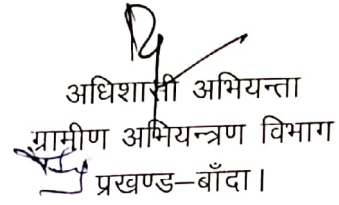 अधिशासी अभियन्ता
ग्रामीण अभियन्त्रण विभाग
प्रखण्ड–बाँदा।